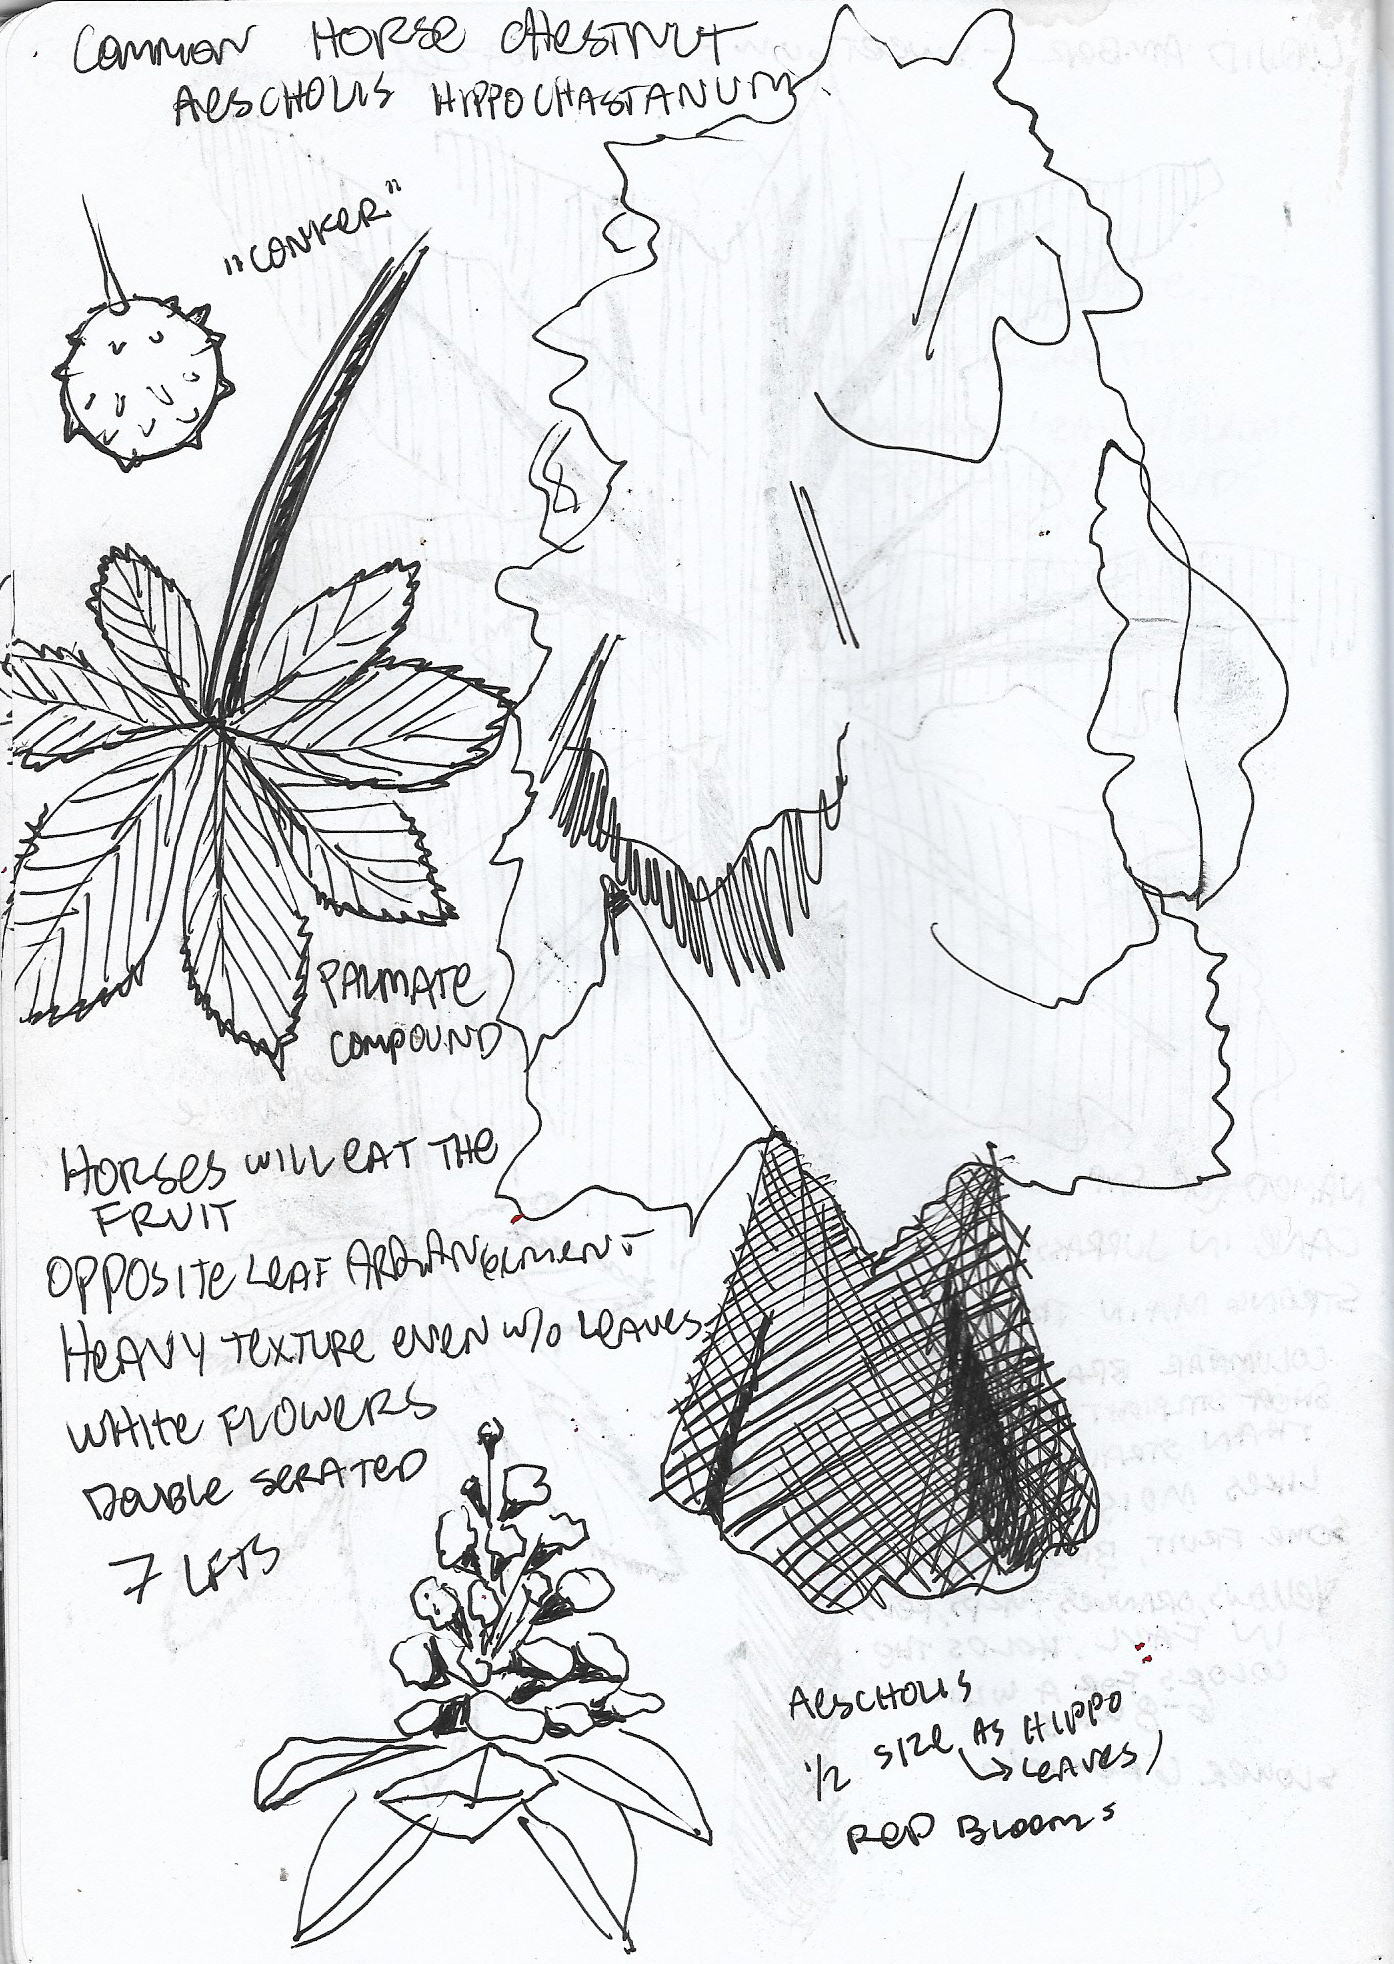 COMMON HORSE CHESTNUT
AESCHOLUS HIPPOCHASTANUM
"CONKER"
PALMATE
COMPOUND
HORSES WILL EAT THE
FRUIT
OPPOSITE LEAF ARRANGEMENT
HEAVY TEXTURE EVEN W/O LEAVES
WHITE FLOWERS
DOUBLE SERATED
7 LFTS
AESCHOLUS
1/2 SIZE AS HIPPO
↳ LEAVES /
RED BLOOMS